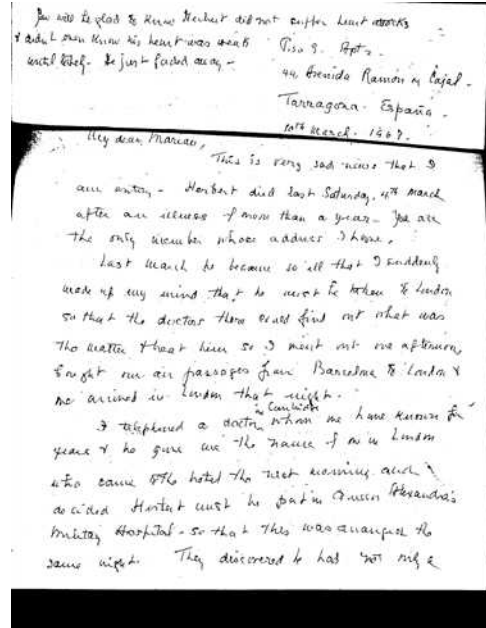 You will be glad to know Herbert did not suffer heart attacks
& didn't even know his heart was weak
until lately. He just faded away -
Piso 8. Apt 2.
44 Avenida Ramón y Cajal.
Tarragona. España.
10th March. 1967.
My dear Marian,
This is very sad news that I
am writing - Herbert died last Saturday, 4th March
after an illness of more than a year - You are
the only member whose address I have.
Last March he became so ill that I suddenly
made up my mind that he must be taken to London
so that the doctors there could find out what was
the matter & treat him so I went out one afternoon,
bought our air passages from Barcelona to London &
we arrived in London that night.
I telephoned a doctor in Cambridge whom we have known for
years & he gave me the name of one in London
who came to the hotel the next morning and
decided Herbert must be put in Queen Alexandra's
Military Hospital - so that this was arranged the
same night. They discovered he had not only a